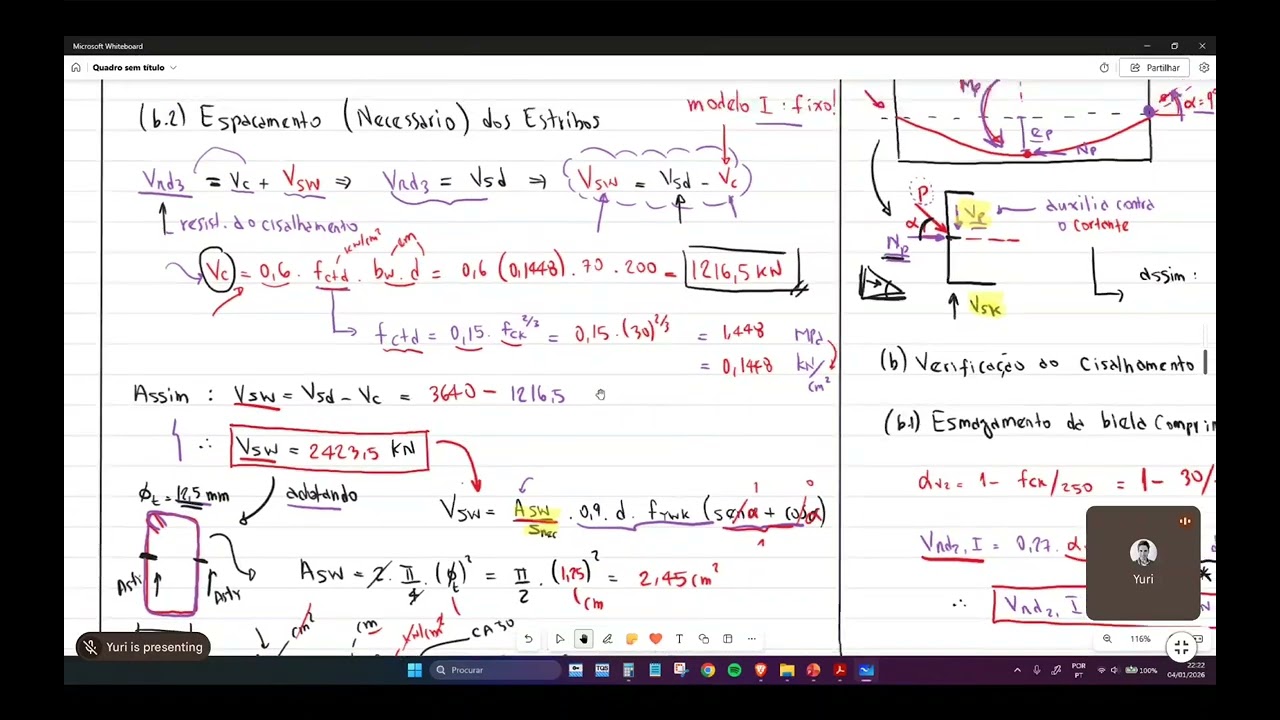 Microsoft Whiteboard
Quadro sem título
Partilhar
(b.2) Espaçamento (Necessário) dos Estribos
modelo I : fixo!
Vrd3 = Vc + Vsw ⇒ Vrd3 = Vsd ⇒ (Vsw = Vsd - Vc)
resist. ao cisalhamento
kN/cm² cm
Vc = 0,6 . fctd . bw.d = 0,6 (0,1448) . 70 . 200 = 1216,5 kN
fctd = 0,15 . fck^2/3 = 0,15 . (30)^2/3 = 1,448 MPa
= 0,1448 kN/cm²
Assim : Vsw = Vsd - Vc = 3640 - 1216,5
∴ Vsw = 2423,5 kN
φt = 12,5 mm adotando
1 0
Vsw = Asw/Snec . 0,9 . d . fywk (senα + cosα)
1
Astr Astr
Asw = 2 . π/4 . (φt)² = π/2 . (1,25)² = 2,45 cm²
cm
cm² cm kN/cm² CA50
Mp
α = 9°
ep
Np
P
α
Vp
auxilia contra
o cortante
Np
Vsk
assim :
(b) Verificação ao Cisalhamento
(b.1) Esmagamento da biela Comprim
αv2 = 1 - fck/250 = 1 - 30/
Vrd2, I = 0,27 . α
∴ Vrd2, I
N
Yuri
Yuri is presenting
T
116%
Procurar
POR
PT
100%
22:22
04/01/2026